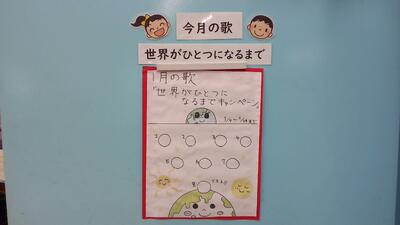 今月の歌
世界がひとつになるまで
1月の歌
「世界がひとつに
なるまでキャンペーン」
1
2
3
4
5
6
7
8